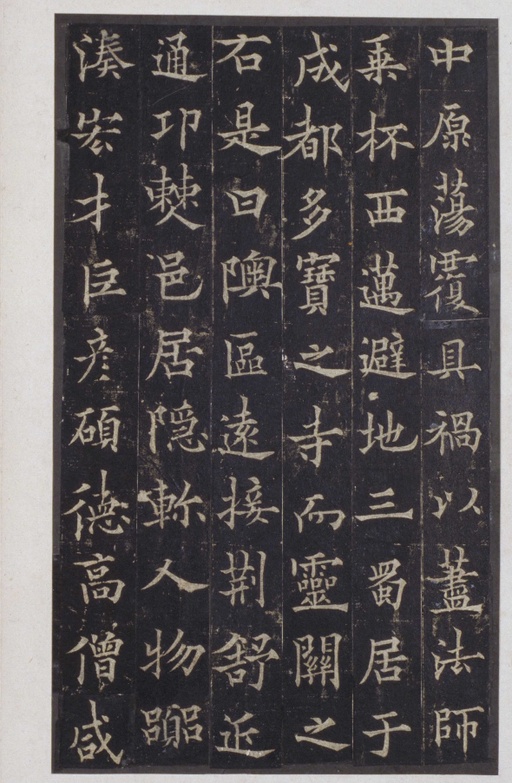 中原蕩覆具禍以藎法師
乗杯西邁避地三蜀居于
成都多寶之寺而靈關之
右是曰隩區遠接荆舒近
通邛僰邑居隱軫人物嚻
湊宏才巨彦碩德高僧咸